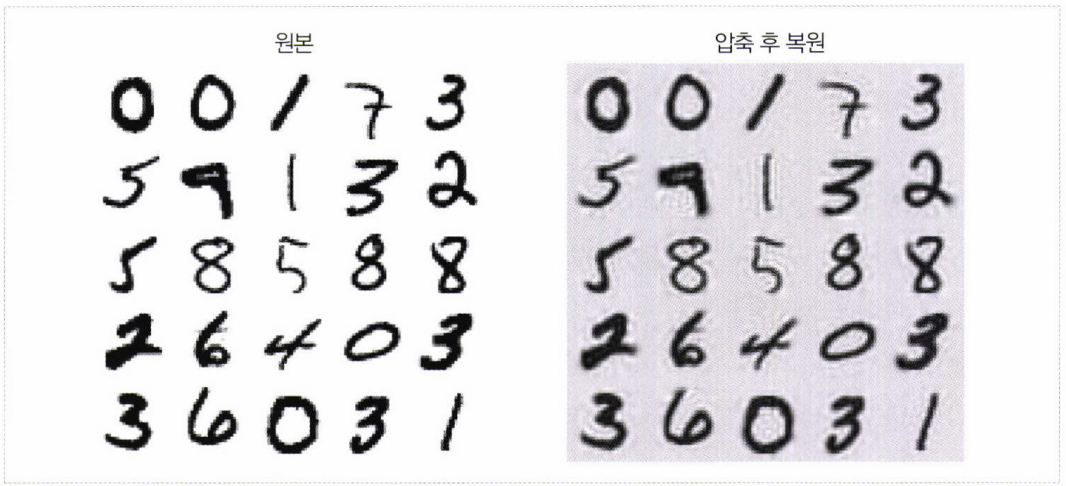 원본
압축 후 복원
0 0 1 7 3
5 9 1 3 2
5 8 5 8 8
2 6 4 0 3
3 6 0 3 1
0 0 1 7 3
5 9 1 3 2
5 8 5 8 8
2 6 4 0 3
3 6 0 3 1